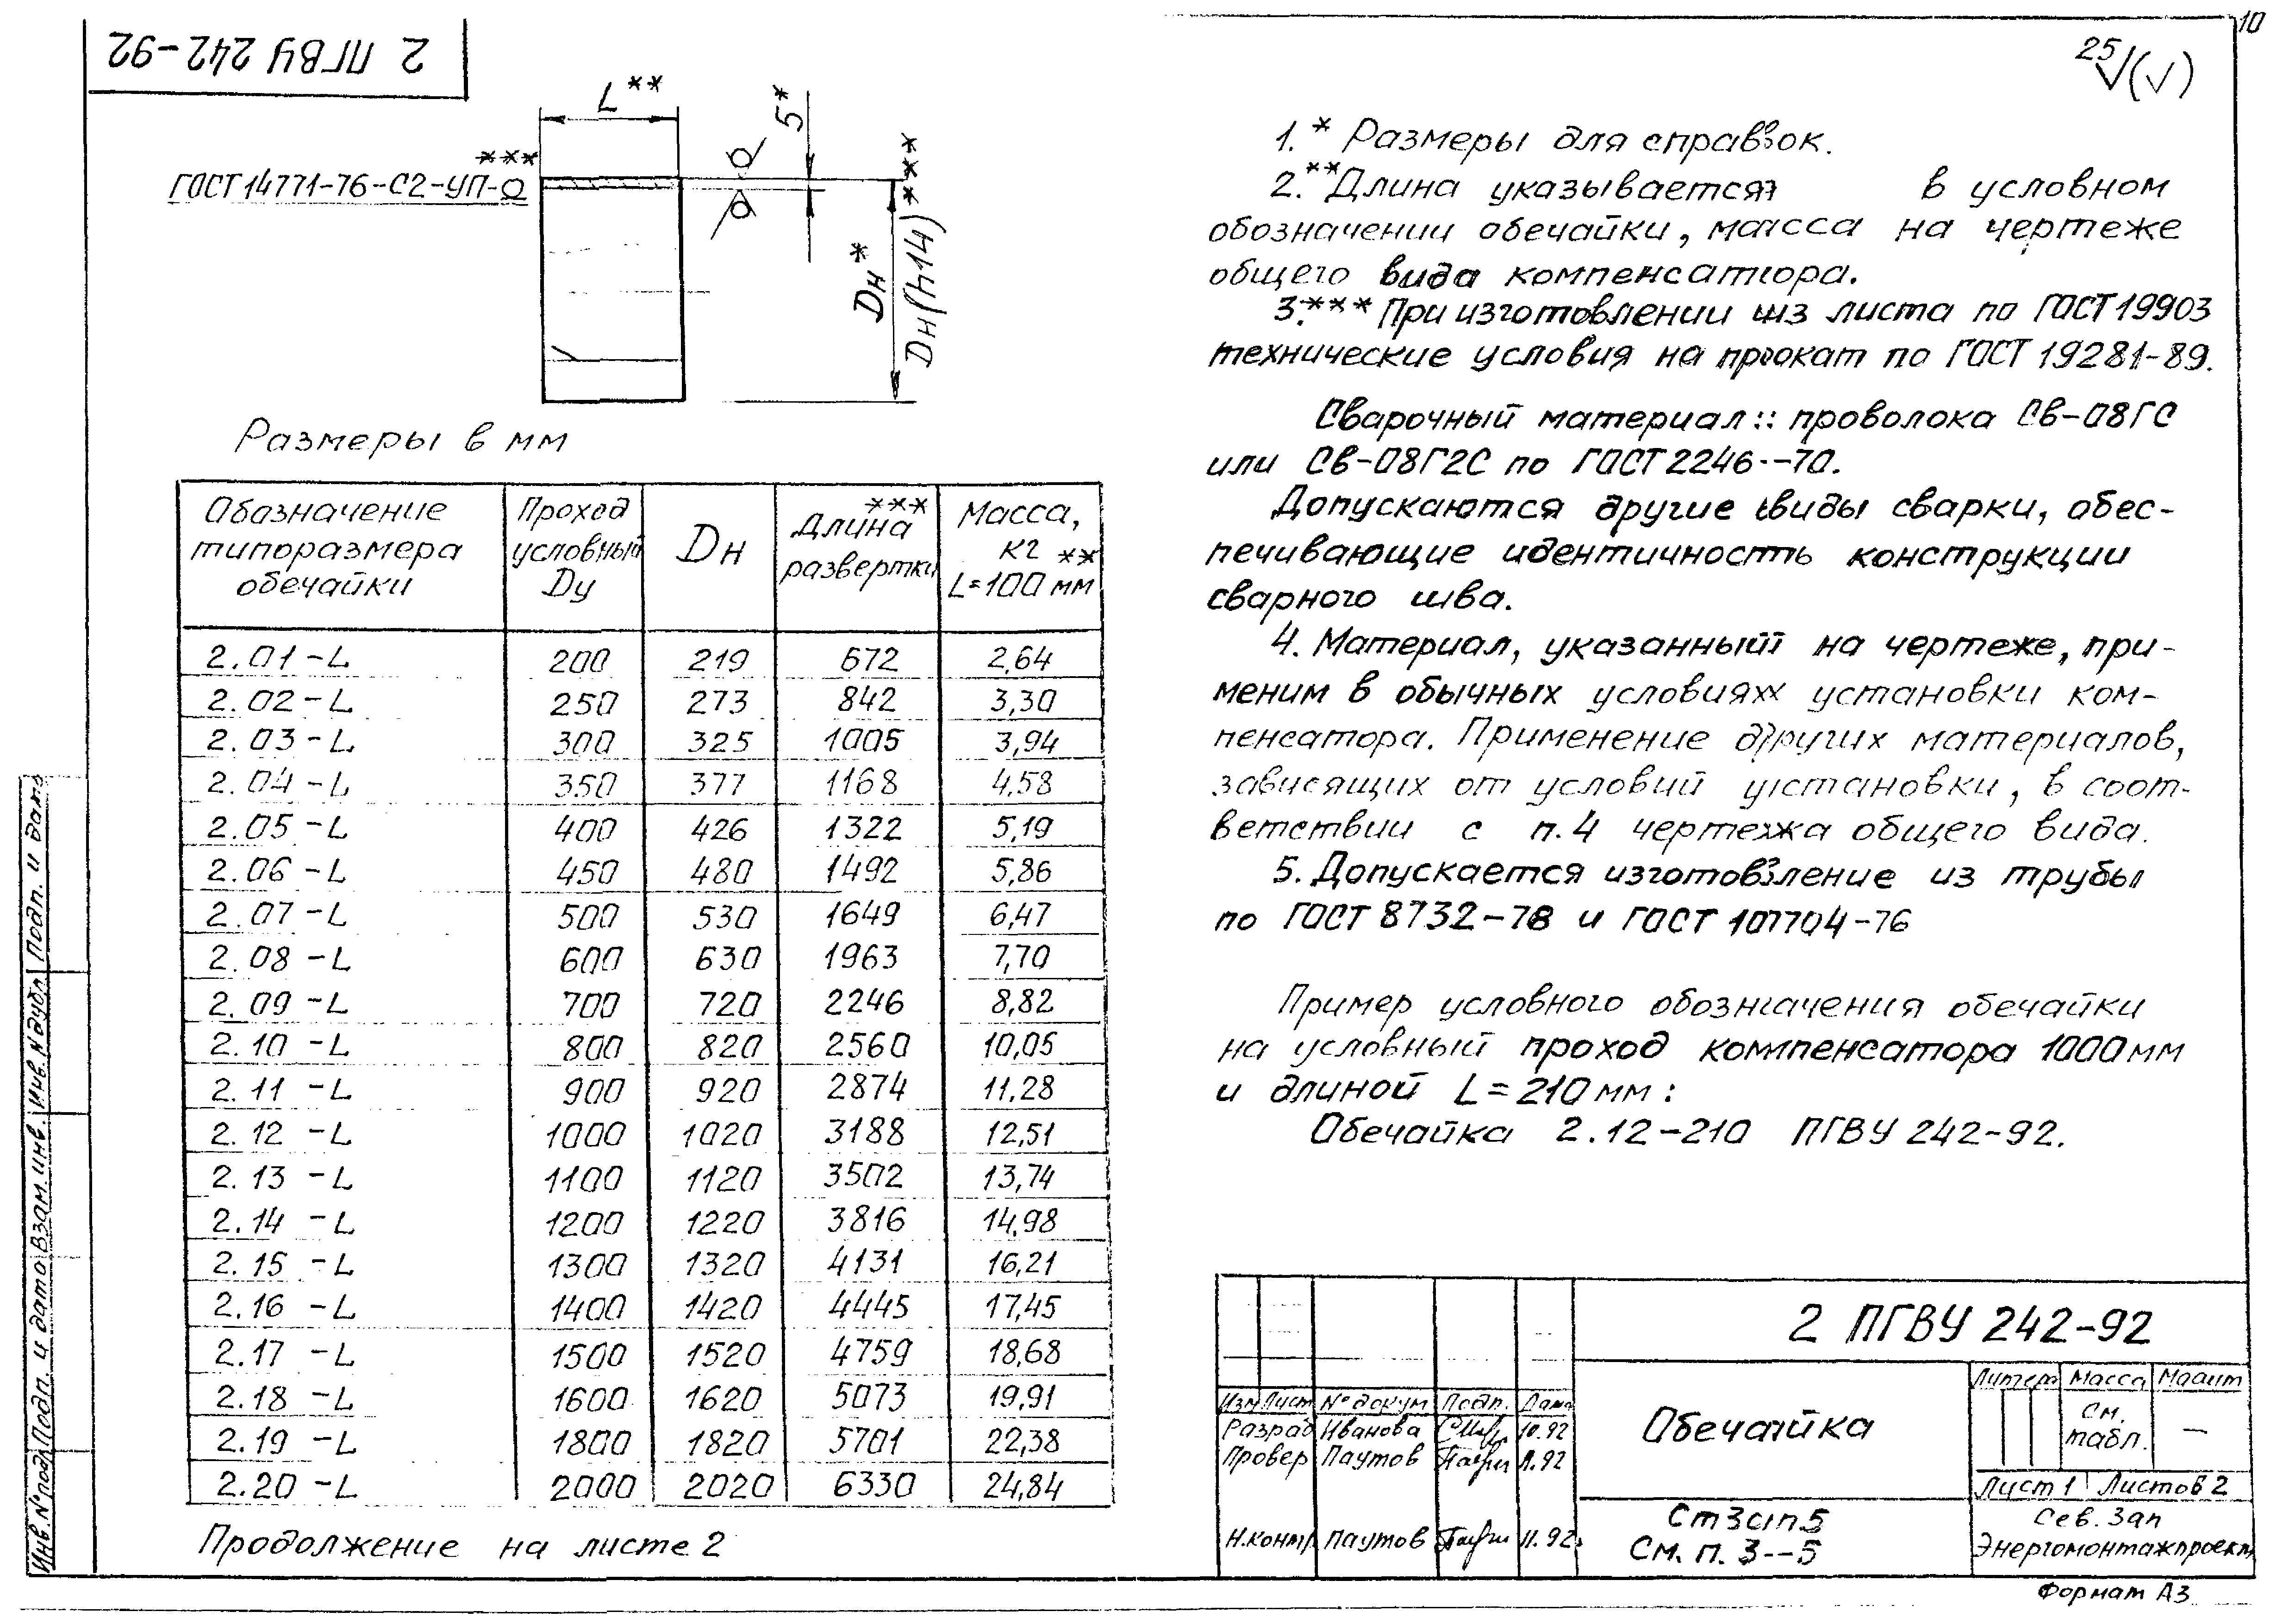 2 ПГВУ 242-92
10
25√(√)
L**
5*
ГОСТ 14771-76-С2-УП-О ***
Dн*
Dн(h14)***
Размеры в мм
Обозначение типоразмера обечайки | Проход условный Dу | Dн | Длина развертки *** | Масса, кг L=100 мм **
2.01-L 200 219 672 2,64
2.02-L 250 273 842 3,30
2.03-L 300 325 1005 3,94
2.04-L 350 377 1168 4,58
2.05-L 400 426 1322 5,19
2.06-L 450 480 1492 5,86
2.07-L 500 530 1649 6,47
2.08-L 600 630 1963 7,70
2.09-L 700 720 2246 8,82
2.10-L 800 820 2560 10,05
2.11-L 900 920 2874 11,28
2.12-L 1000 1020 3188 12,51
2.13-L 1100 1120 3502 13,74
2.14-L 1200 1220 3816 14,98
2.15-L 1300 1320 4131 16,21
2.16-L 1400 1420 4445 17,45
2.17-L 1500 1520 4759 18,68
2.18-L 1600 1620 5073 19,91
2.19-L 1800 1820 5701 22,38
2.20-L 2000 2020 6330 24,84
Продолжение на листе 2
1.* Размеры для справок.
2.** Длина указывается в условном
обозначении обечайки, масса на чертеже
общего вида компенсатора.
3.*** При изготовлении из листа по ГОСТ 19903
технические условия на прокат по ГОСТ 19281-89.
Сварочный материал: проволока Св-08ГС
или Св-08Г2С по ГОСТ 2246-70.
Допускаются другие виды сварки, обес-
печивающие идентичность конструкции
сварного шва.
4. Материал, указанный на чертеже, при-
меним в обычных условиях установки ком-
пенсатора. Применение других материалов,
зависящих от условий установки, в соот-
ветствии с п.4 чертежа общего вида.
5. Допускается изготовление из трубы
по ГОСТ 8732-78 и ГОСТ 10704-76
Пример условного обозначения обечайки
на условный проход компенсатора 1000 мм
и длиной L=210 мм:
Обечайка 2.12-210 ПГВУ 242-92.
2 ПГВУ 242-92
Изм Лист № докум Подп. Дата
Разраб Иванова 10.92
Провер Паутов 11.92
Н.контр Паутов 11.92
Обечайка
Литера Масса Масшт
См. табл. —
Лист 1 Листов 2
Ст3сп5
См. п. 3-5
Сев. Зап
Энергомонтажпроект
Формат А3
Инв.№подл Подп. и дата Взам.инв. Инв.№дубл Подп. и дата